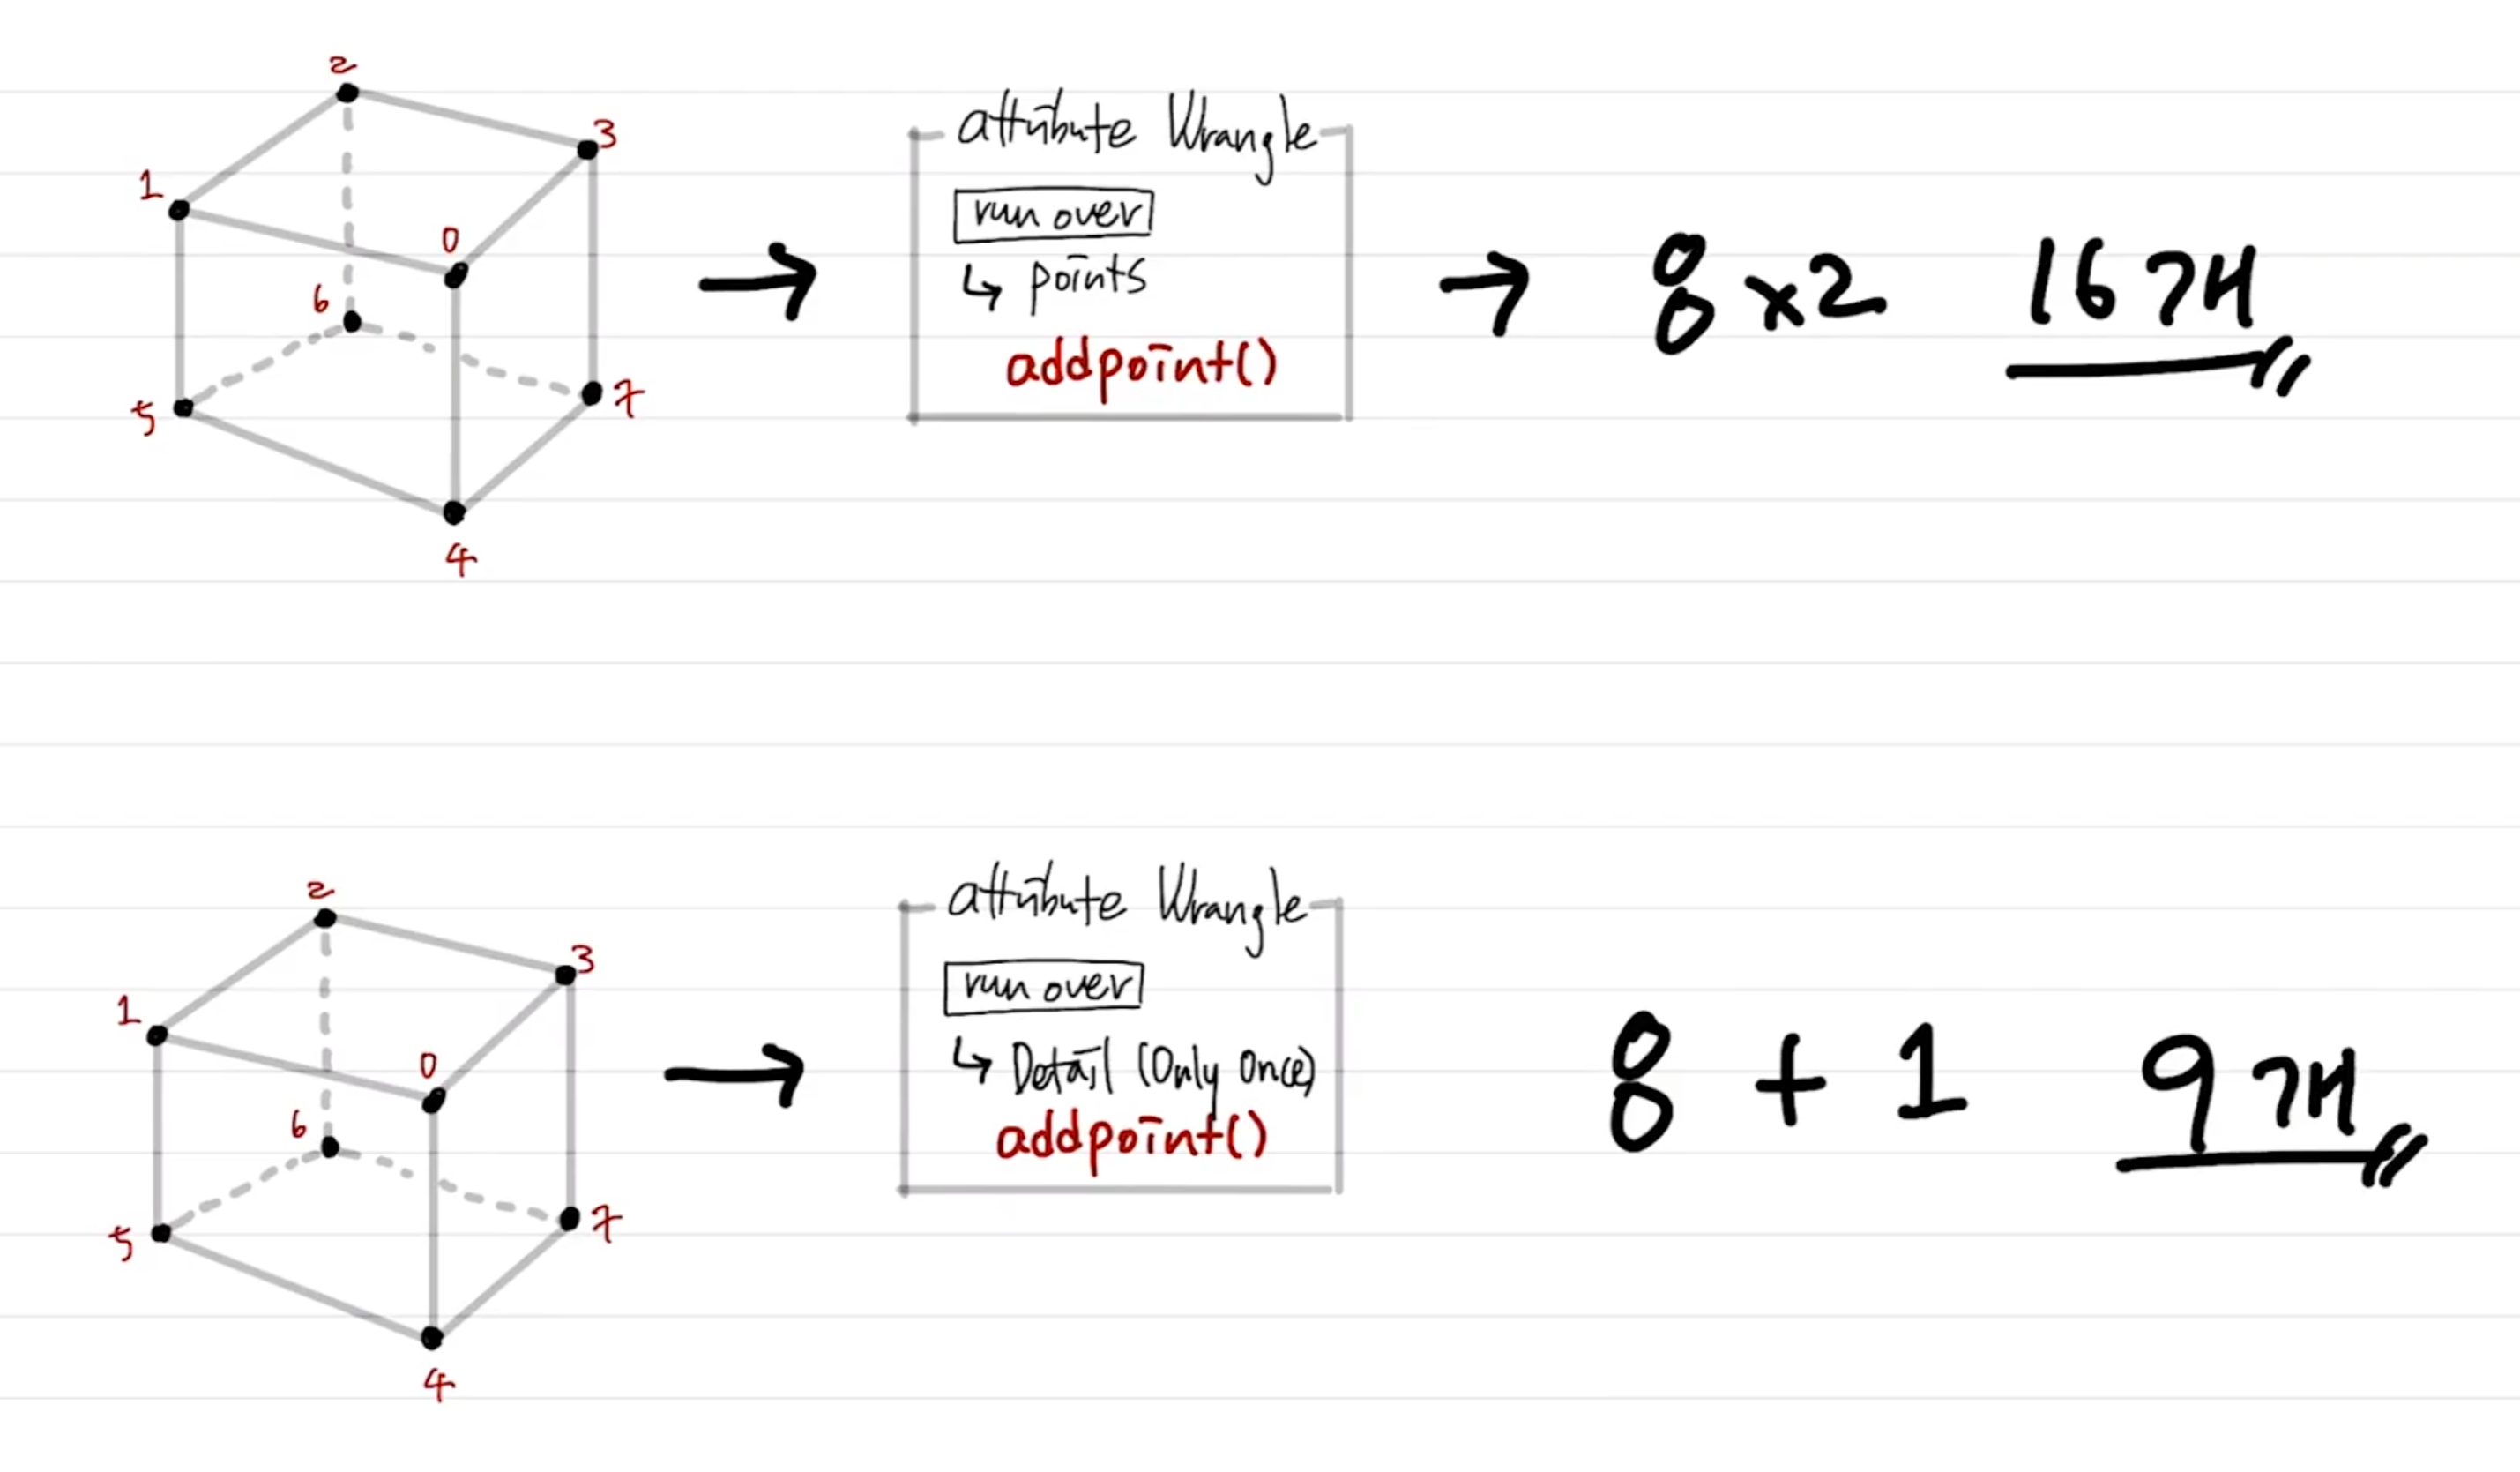 2
3
1
0
6
5
7
4
attribute Wrangle
run over
↳ points
addpoint()
→ 8 x 2 16개
2
3
1
0
6
5
7
4
attribute Wrangle
run over
↳ Detail (Only Once)
addpoint()
8 + 1 9개